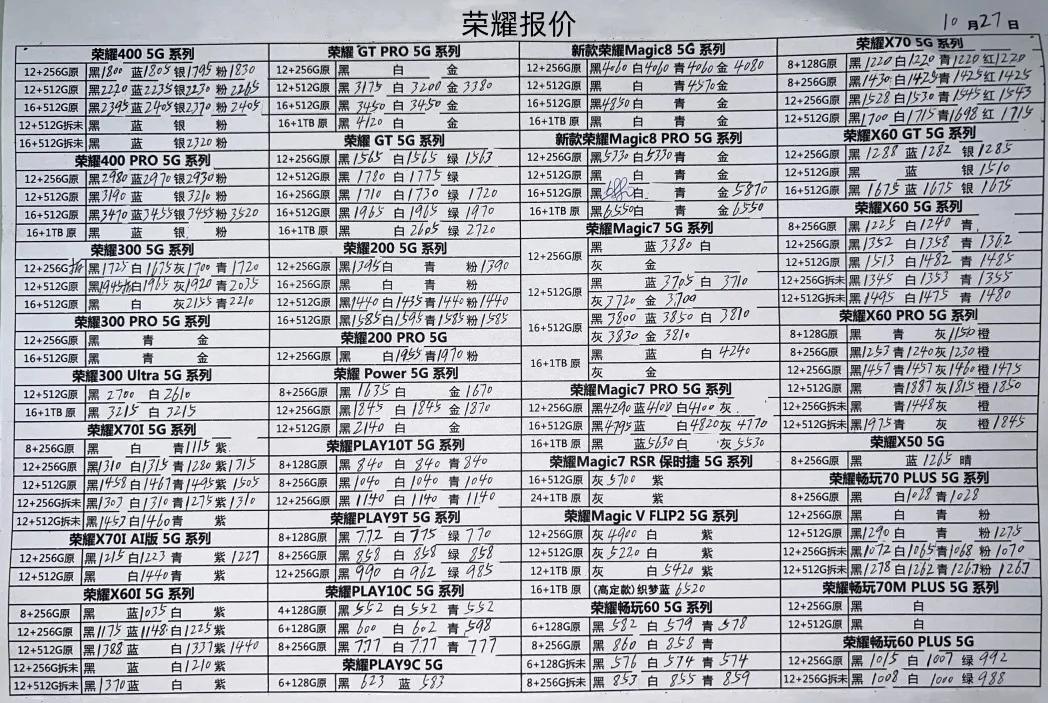 荣耀报价
10月27日
荣耀400 5G 系列
12+256G原 黑1800 蓝1805 银1795 粉1830
12+512G原 黑2220 蓝2235 银2230 粉2265
16+512G原 黑2395 蓝2405 银2370 粉2405
12+512G拆未 黑 蓝 银 粉
16+512G拆未 黑 蓝 银2320 粉
荣耀400 PRO 5G 系列
12+256G原 黑2980 蓝2970 银2930 粉
12+512G原 黑3190 蓝 银3210 粉
16+512G原 黑3470 蓝3455 银3455 粉3520
16+1TB 原 黑 蓝 银 粉
荣耀300 5G 系列
12+256G拆 黑1725 白1675 灰1700 青1720
12+512G原 黑1945拆 白1965 灰1920 青2035
16+512G原 黑 白 灰2155 青2210
荣耀300 PRO 5G 系列
12+256G原 黑 青 金
16+512G原 黑 青 金
荣耀300 Ultra 5G 系列
12+512G原 黑 2700 白2610
16+1TB 原 黑 3215 白 3215
荣耀X70I 5G 系列
8+256G原 黑 白 青1115 紫
12+256G原 黑1310 白1315 青1280 紫1315
12+512G原 黑1458 白1467 青1495 紫1505
12+256G拆未 黑1303 白1310 青1275 紫1310
12+512G拆未 黑1457 白1460 青 紫
荣耀X70I AI版 5G 系列
12+256G原 黑1215 白1223 青 紫1227
12+512G原 黑 白1440 青 紫
荣耀X60I 5G 系列
8+256G原 黑 蓝1035 白 紫
12+256G原 黑1175 蓝1148 白1225 紫
12+512G原 黑1388 蓝 白1337 紫1440
12+256G拆未 黑 蓝 白1210 紫
12+512G拆未 黑1370 蓝 白 紫
荣耀 GT PRO 5G 系列
12+256G原 黑 白 金
12+512G原 黑 3175 白 3200 金3380
16+512G原 黑 3450 白 3450 金
16+1TB 原 黑 4120 白 金
荣耀 GT 5G 系列
12+256G原 黑1565 白1565 绿 1563
12+512G原 黑 1780 白 1775 绿
16+256G原 黑 1710 白1730 绿 1720
16+512G原 黑1965 白 1965 绿 1970
16+1TB 原 黑 白 2605 绿 2720
荣耀200 5G 系列
12+256G原 黑1395 白 青 粉1390
16+256G原 黑 白 青 粉
12+512G原 黑1440 白1435 青1440 粉1440
16+512G原 黑1585 白1595 青1585 粉1585
荣耀200 PRO 5G
12+256G原 黑 白1955 青1970 粉
荣耀 Power 5G 系列
8+256G原 黑 1635 白 金 1670
12+256G原 黑1845 白 1845 金 1870
12+512G原 黑2140 白 金
荣耀PLAY10T 5G 系列
8+128G原 黑 840 白 840 青840
8+256G原 黑1040 白 1040 青 1040
12+256G原 黑 1140 白 1140 青 1140
荣耀PLAY9T 5G 系列
8+128G原 黑 772 白 775 绿 770
8+256G原 黑 858 白 858 绿 858
12+256G原 黑 990 白 962 绿 985
荣耀PLAY10C 5G 系列
4+128G原 黑 552 白 552 青 552
6+128G原 黑 600 白 602 青 598
8+256G原 黑 777 白 777 青 777
荣耀PLAY9C 5G
6+128G原 黑 623 蓝 583
新款荣耀Magic8 5G 系列
12+256G原 黑4060 白4060 青4060 金 4080
12+512G原 黑 白 青4570 金
16+512G原 黑4850 白 青 金
16+1TB 原 黑 白 青 金
新款荣耀Magic8 PRO 5G 系列
12+256G原 黑5330 白5330 青 金
12+512G原 黑 白 青 金
16+512G原 黑 白 青 金 5870
16+1TB 原 黑6550 白 青 金 6550
荣耀Magic7 5G 系列
12+256G原 黑 蓝 3380 白
灰 金
12+512G原 黑 蓝 3705 白 3710
灰 3720 金 3700
16+512G原 黑 3800 蓝 3850 白 3810
灰 3830 金 3810
16+1TB 原 黑 蓝 白 4240
灰 金
荣耀Magic7 PRO 5G 系列
12+256G原 黑4290 蓝4100 白4100 灰
16+512G原 黑4795 蓝 白4820 灰 4770
16+1TB 原 黑 蓝5630 白 灰 5530
荣耀Magic7 RSR 保时捷 5G 系列
16+512G原 灰 5700 紫
24+1TB 原 灰 紫
荣耀Magic V FLIP2 5G 系列
12+256G原 灰 4900 白 紫
12+512G原 灰 5220 白 紫
12+1TB 原 灰 白 5420 紫
16+1TB 原 (高定款) 织梦蓝 6520
荣耀畅玩60 5G 系列
6+128G原 黑 582 白 579 青 578
8+256G原 黑 860 白 858 青
6+128G拆未 黑 576 白 574 青 574
8+256G拆未 黑 853 白 855 青 859
荣耀X70 5G 系列
8+128G原 黑1220 白1220 青1220 红1220
8+256G原 黑1430 白1425 青1425 红1425
12+256G原 黑1528 白1530 青1545 红 1543
12+512G原 黑1700 白1715 青1698 红 1715
荣耀X60 GT 5G 系列
12+256G原 黑 1288 蓝 1282 银 1285
12+512G原 黑 蓝 银1510
16+512G原 黑1675 蓝 1675 银 1675
荣耀X60 5G 系列
8+256G原 黑1225 白 1240 青
12+256G原 黑1352 白 1358 青 1362
12+512G原 黑1513 白 1482 青 1485
12+256G拆未 黑1345 白 1353 青 1355
12+512G拆未 黑1495 白 1475 青 1480
荣耀X60 PRO 5G 系列
8+128G原 黑 青 灰1150 橙
8+256G原 黑1253 青1240 灰1230 橙
12+256G原 黑1457 青1457 灰1460 橙1475
12+512G原 黑 青1887 灰1815 橙1850
12+256G拆未 黑 青1448 灰 橙
12+512G拆未 黑1975 青 灰 橙1845
荣耀X50 5G
8+256G原 黑 蓝 1265 晴
荣耀畅玩70 PLUS 5G 系列
8+256G原 黑 白1028 青1028
12+256G原 黑 白 青 粉
12+512G原 黑1290 白 青 粉1275
12+256G拆未 黑1072 白1065 青1068 粉 1070
12+512G拆未 黑1278 白1262 青1267 粉 1267
荣耀畅玩70M PLUS 5G 系列
12+256G原 黑 白
12+512G原 黑 白
荣耀畅玩60 PLUS 5G
12+256G原 黑 1015 白 1007 绿 992
12+256G拆未 黑 1008 白 1000 绿 988